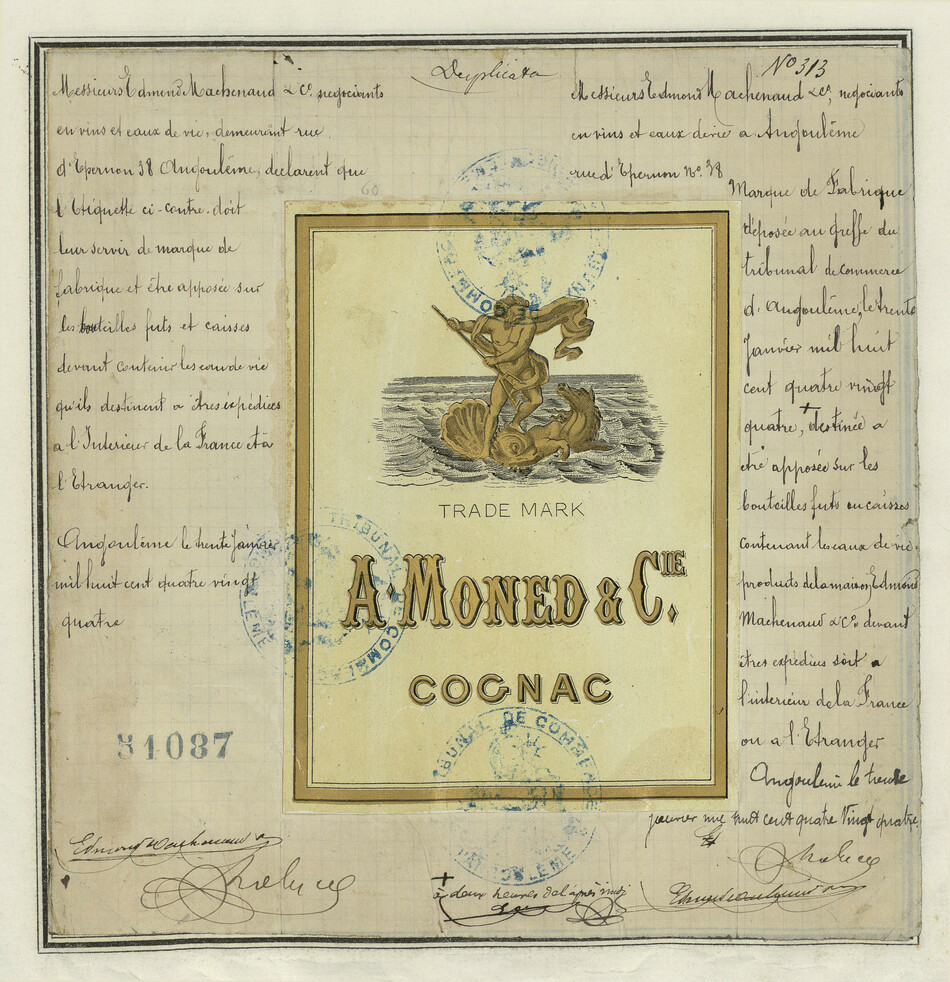 Duplicata
No 313
Messieurs Edmond Machenaud & Co. negociants
en vins et eaux de vie, demeurant rue
d'Epernon 38 Angoulême, declarent que
l'Etiquette ci-contre doit
leur servir de marque de
fabrique et être apposée sur
les bouteilles futs et caisses
devant contenir les eaux de vie
qu'ils destinent a êtres éxpédiees
a l'Interieur de la France et à
l'Etranger.
Angoulême le trente Janvier
mil huit cent quatre vingt
quatre
51087
Edmond Machenaud
60
TRADE MARK
A. MONED & CIE.
COGNAC
TRIBUNAL DE COMMERCE
ANGOULÊME
TRIBUNAL DE COMMERCE
ANGOULÊME
TRIBUNAL DE COMMERCE
+
à deux heures de l'après midi
Messieurs Edmond Machenaud & Co, negociants
en vins et eaux de vie a Angoulême
rue d'Epernon No. 38
Marque de Fabrique
déposée au Greffe du
tribunal de Commerce
d'Angoulême, le trente
Janvier mil huit
cent quatre vingt
quatre, + destinée a
etre apposée sur les
bouteilles futs ou caisses
contenant les eaux de vie
produits de la maison Edmond
Machenaud & Co. devant
êtres expédiees soit a
l'interieur de la France
ou a l'Etranger
Angoulême le trente
janvier mil huit cent quatre Vingt quatre.
Edmond Machenaud